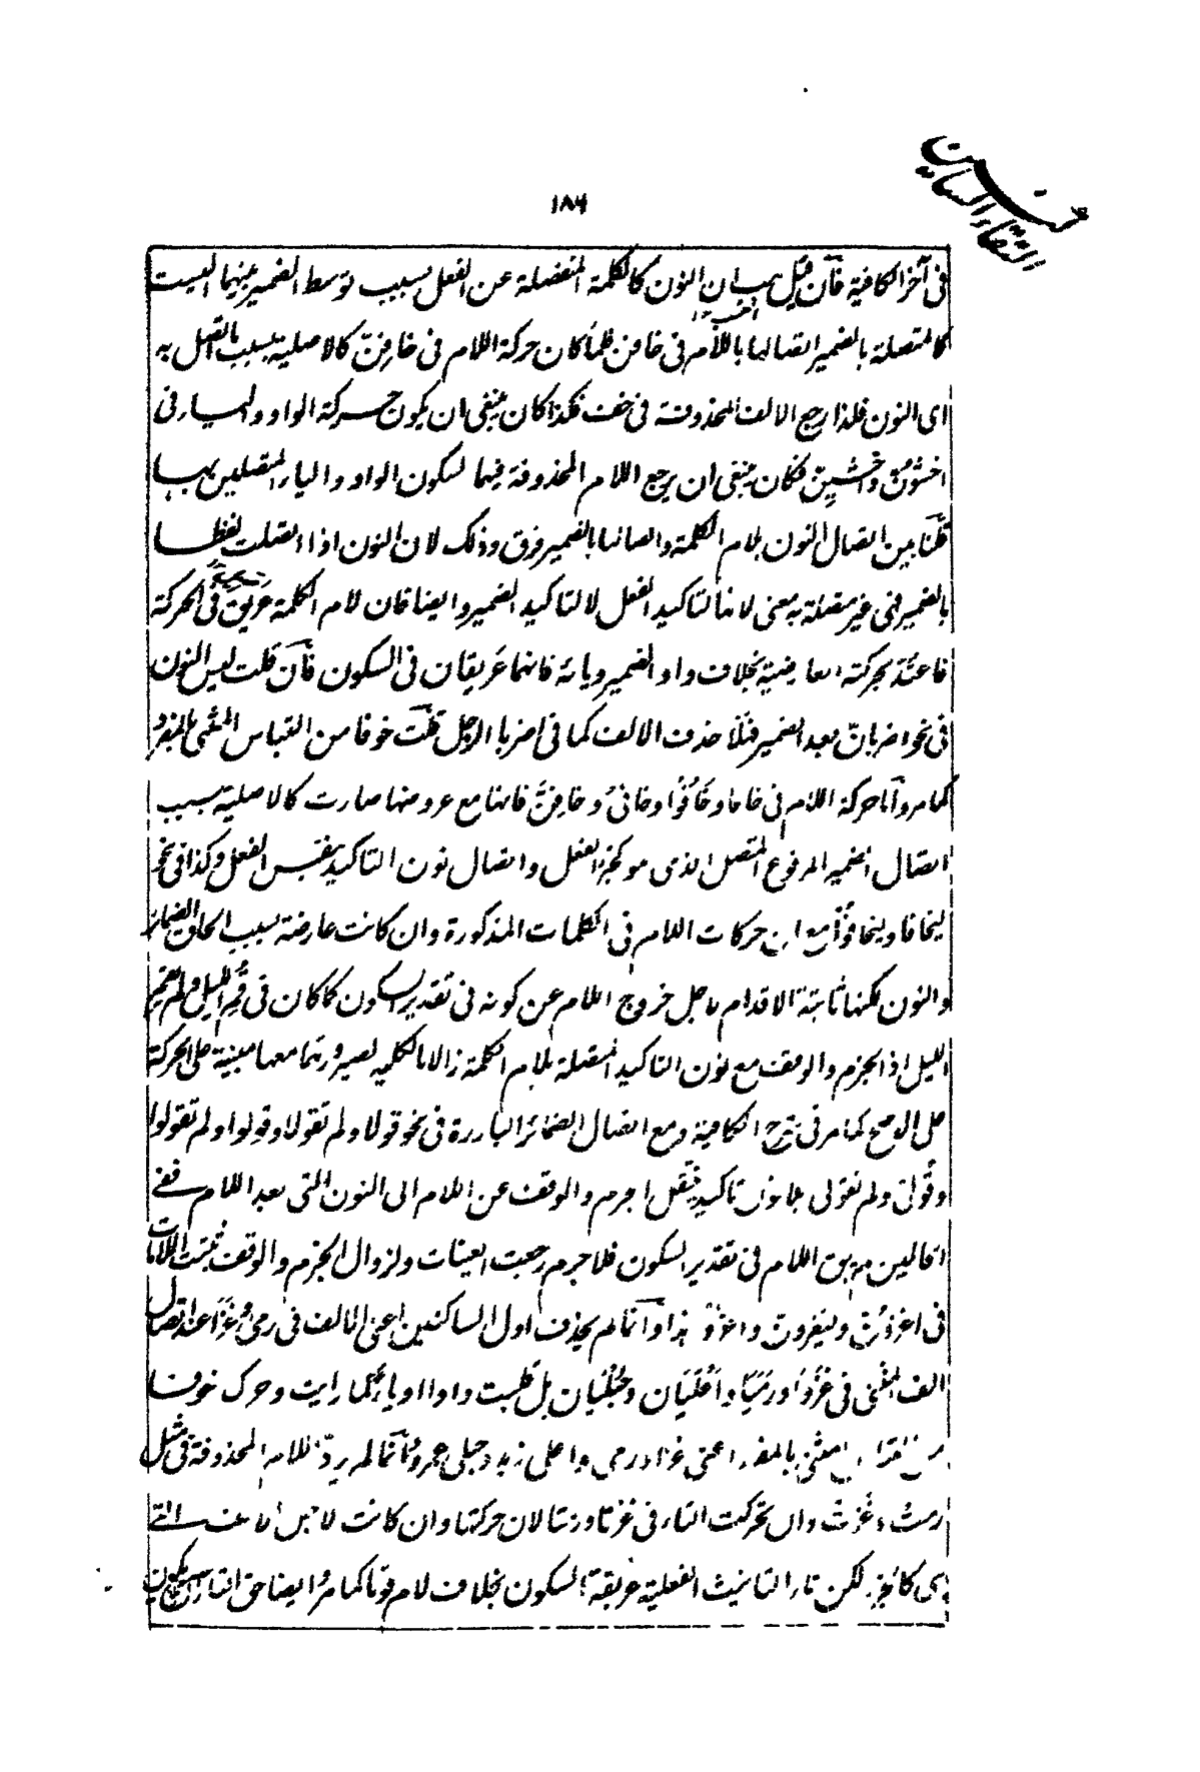 ١٨٤
بحث التقاء الساكنين
فى آخر الكافية فآن قيل هب ان النون كالكلمة المنفصلة عن الفعل بسبب توسط الضمير بينهما اليست
كالمتصلة بالضمير اتصالها باللام فى خافن فلما كان حركة اللام فى خافن كالاصلية بسبب ما اتصل به
اى النون فلذا رجع الالف المحذوفة فى خف فكذا كان ينبغى ان يكون حركة الواو والياء فى
اخشون واخشين فكان ينبغى ان يرجع اللام المحذوفة فيهما لسكون الواو والياء المتصلين بها
قلنا بين اتصال النون بلام الكلمة واتصالها بالضمير فرق وذلك لان النون اذا اتصلت لفظا
بالضمير فهى غير متصلة به معنى لانها لتاكيد الفعل لا لتاكيد الضمير وايضا فان لام الكلمة عريق فى الحركة
فاعتد بحركته العارضية بخلاف واو الضمير ويائه فانهما عريقان فى السكون فآن قلت ليس النون
فى نحو اضربان بعد الضمير فهلا حذف الالف كما فى اضربا الرجل قلت خوفا من التباس المثنى بالمفرد
كما مر وآما حركة اللام فى خافا وخافوا وخافى وخافن فانها مع عروضها صارت كالاصلية بسبب
اتصال الضمير المرفوع المتصل الذى هو كجزء الفعل واتصال نون التاكيد بنفس الفعل وكذا فى نحو
ليخافا وليخافوا مع ان حركات اللام فى الكلمات المذكورة وان كانت عارضة بسبب الحاق الضمائر
والنون لكنها ثابتة الاقدام لاجل خروج اللام عن كونه فى تقدير السكون كما كان فى قم الليل ولم يقم
الليل اذ الجزم والوقف مع نون التاكيد المتصلة بلام الكلمة زالا بالكلية لصيرورتها معها مبنية على الحركة
على الاصح كما مر فى شرح الكافية ومع اتصال الضمائر البارزة فى نحو قولا ولم تقولا وقولوا ولم تقولوا
وقولى ولم تقولى بلا نون تاكيد ينتقل الجزم والوقف عن اللام الى النون التى بعد اللام ففى
الحالين لم يبق اللام فى تقدير السكون فلا جرم رجعت العينات ولزوال الجزم والوقف ثبتت اللامات
فى اغزون وليغزون واغزوا هذا وآنما لم يحذف اول الساكنين اعنى الالف فى رمى وغزا عند اتصال
الف المثنى فى غزوا ورميا واعليان وحبليان بل قلبت واوا او ياء كما رايت وحرك خوفا
من التباس المثنى بالمفرد اعنى غزا ورمى واعلى زيد وحبلى عمرو وآنما لم يرد اللام المحذوفة فى مثل
رمت وغزت وان تحركت التاء فى غزتا ورمتا لان حركتها وان كانت لاجل الالف التى
هى كالجزء لكن تاء التانيث الفعلية عريقة السكون بخلاف لام قوما كما مر وايضا حق التاء